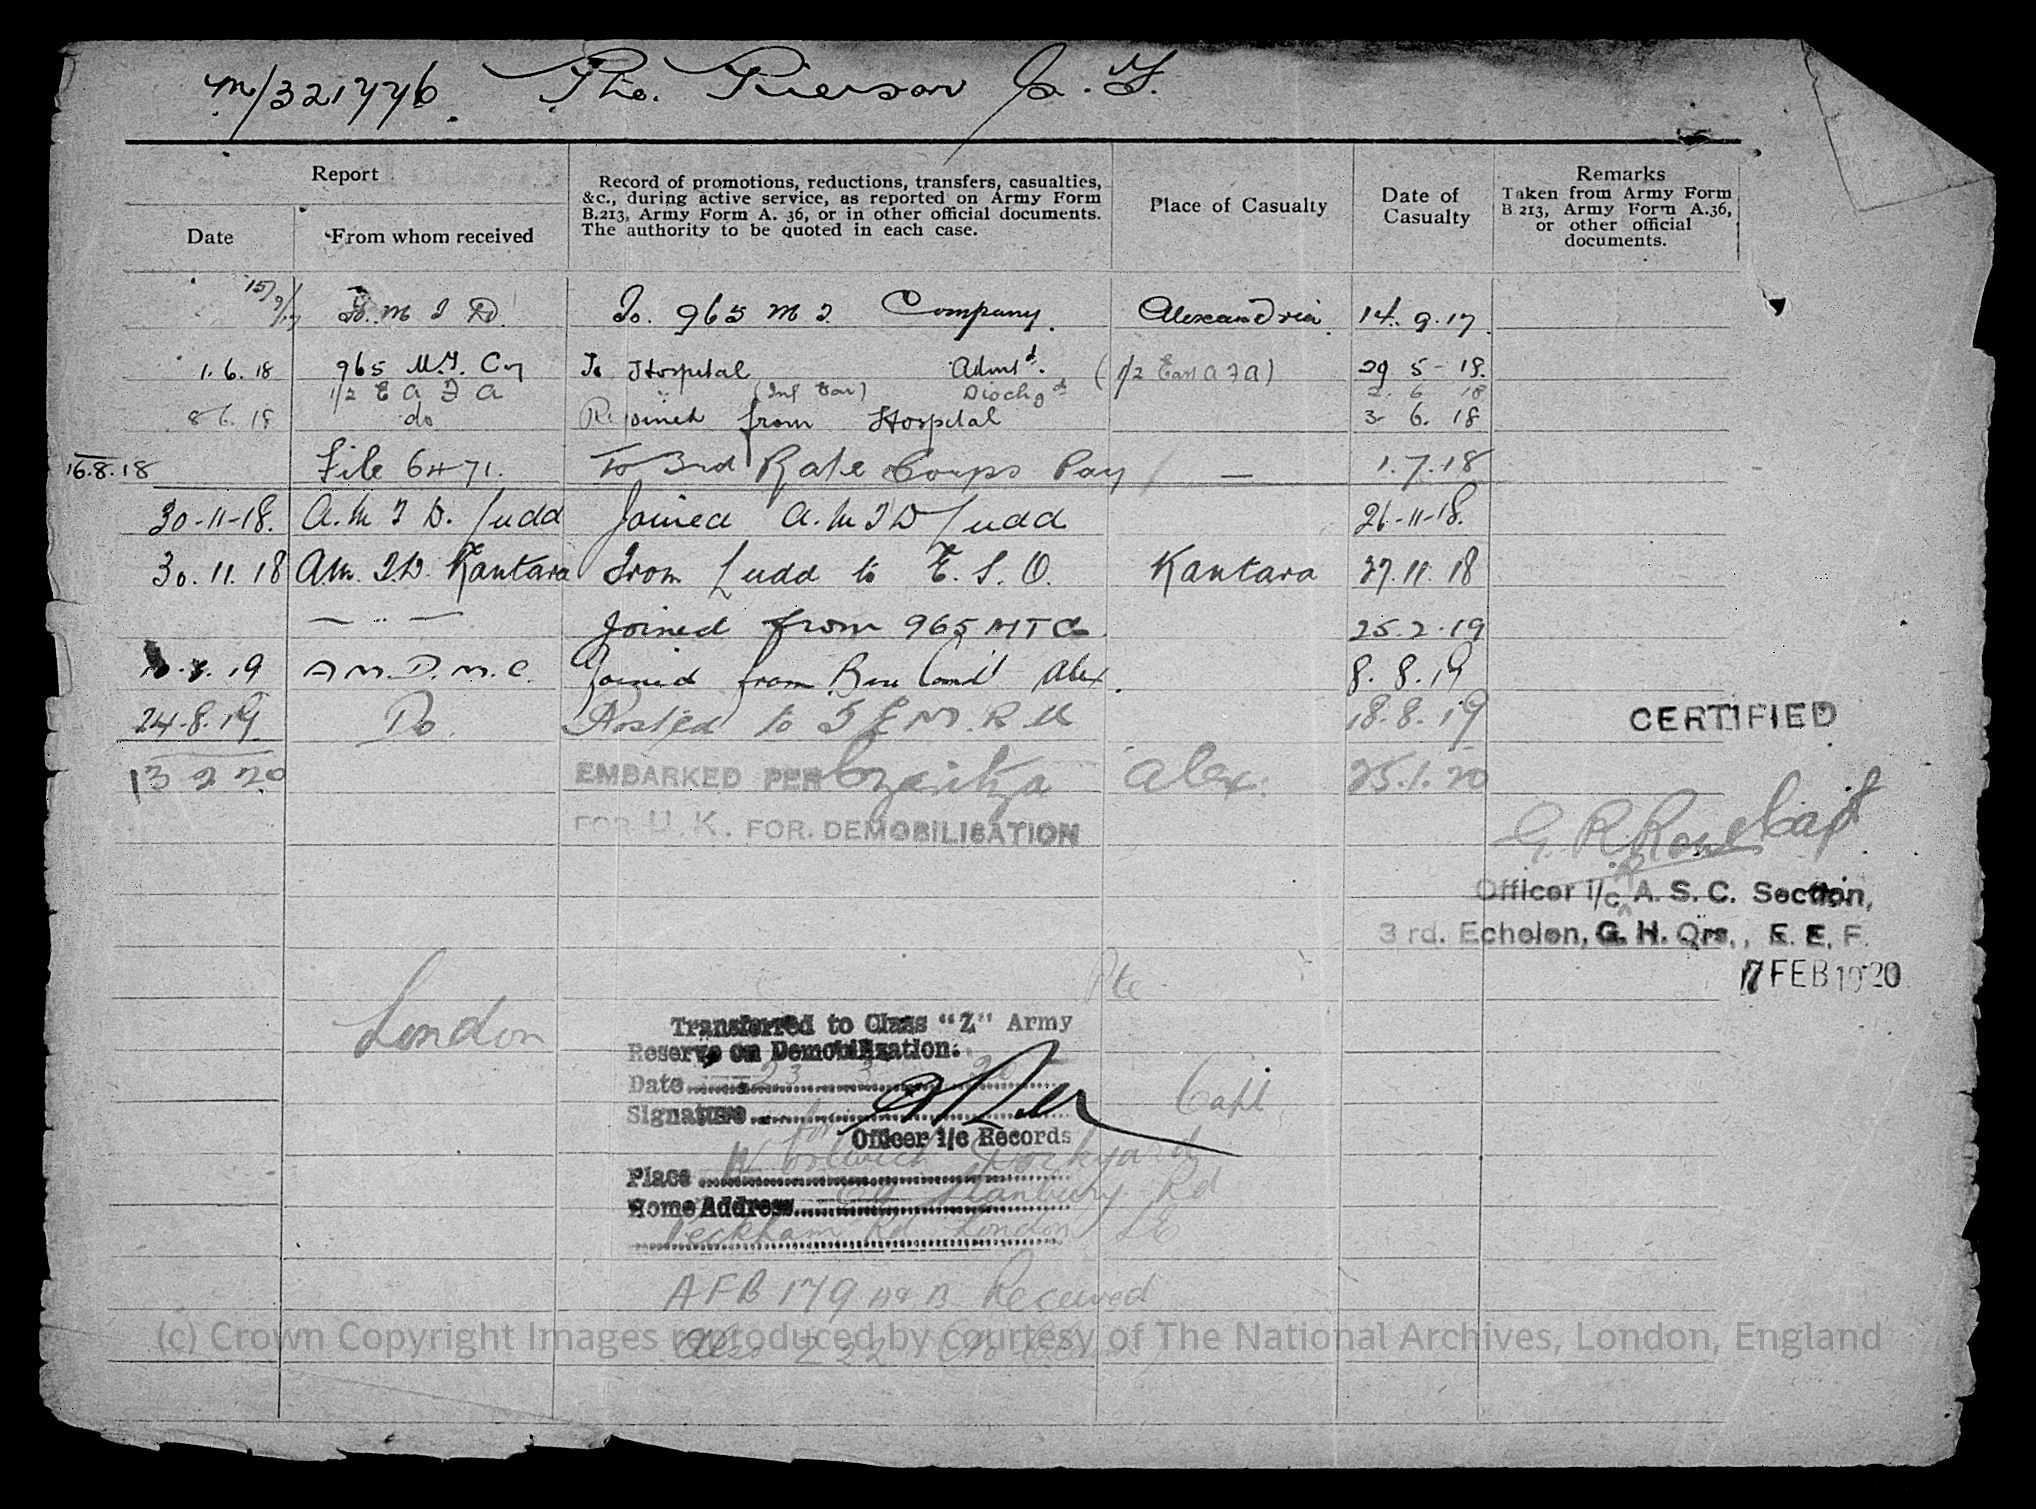 M/321776. Pte. Pierson G. F.
Report
Date
From whom received
Record of promotions, reductions, transfers, casualties, &c., during active service, as reported on Army Form B.213, Army Form A. 36, or in other official documents. The authority to be quoted in each case.
Place of Casualty
Date of Casualty
Remarks
Taken from Army Form B.213, Army Form A.36, or other official documents.
15/9/17 M T D. To. 965 M T. Company. Alexandria. 14.9.17.
1.6.18 965 M.T. Coy To Hospital Admtd. (1/2 East A F A) 29 5-18.
1/2 E A F A (Inf Ear) Dischgd 2. 6 18
8 6. 18 do Rejoined from Hospital 3- 6. 18
16.8.18 File 6471. To 3rd Rate Corps Pay — 1.7.18
30-11-18. A.M.T.D. Ludd Joined A.M.T.D Ludd 26-11-18.
30.11.18 A.M.T.D. Kantara From Ludd to E.S.O. Kantara 27.11.18
— .. — Joined from 965 MTC 25.2.19
.8.19 A M.D.M.C. Joined from Base Comd Alex. 8.8.19
24.8.19 Do. Posted to 5 E M R U 18.8.19
13 2 20 EMBARKED PER Czaritza Alex. 25.1.20
FOR U.K. FOR. DEMOBILISATION
CERTIFIED
G. R. Capt
Officer i/c R A. S. C. Section,
3rd. Echelon, G. H. Qrs., E. E. F.
17 FEB 1920
Pte
London
Transferred to Class "Z" Army
Reserve on Demobilization.
Date 23 3 20
Signature Capt
for Officer i/c Records
Place Woolwich Dockyard
Home Address Stanbury Rd
Peckham Rd London SE
AFB 179 A & B Received
Also Z 22
(c) Crown Copyright Images reproduced by courtesy of The National Archives, London, England